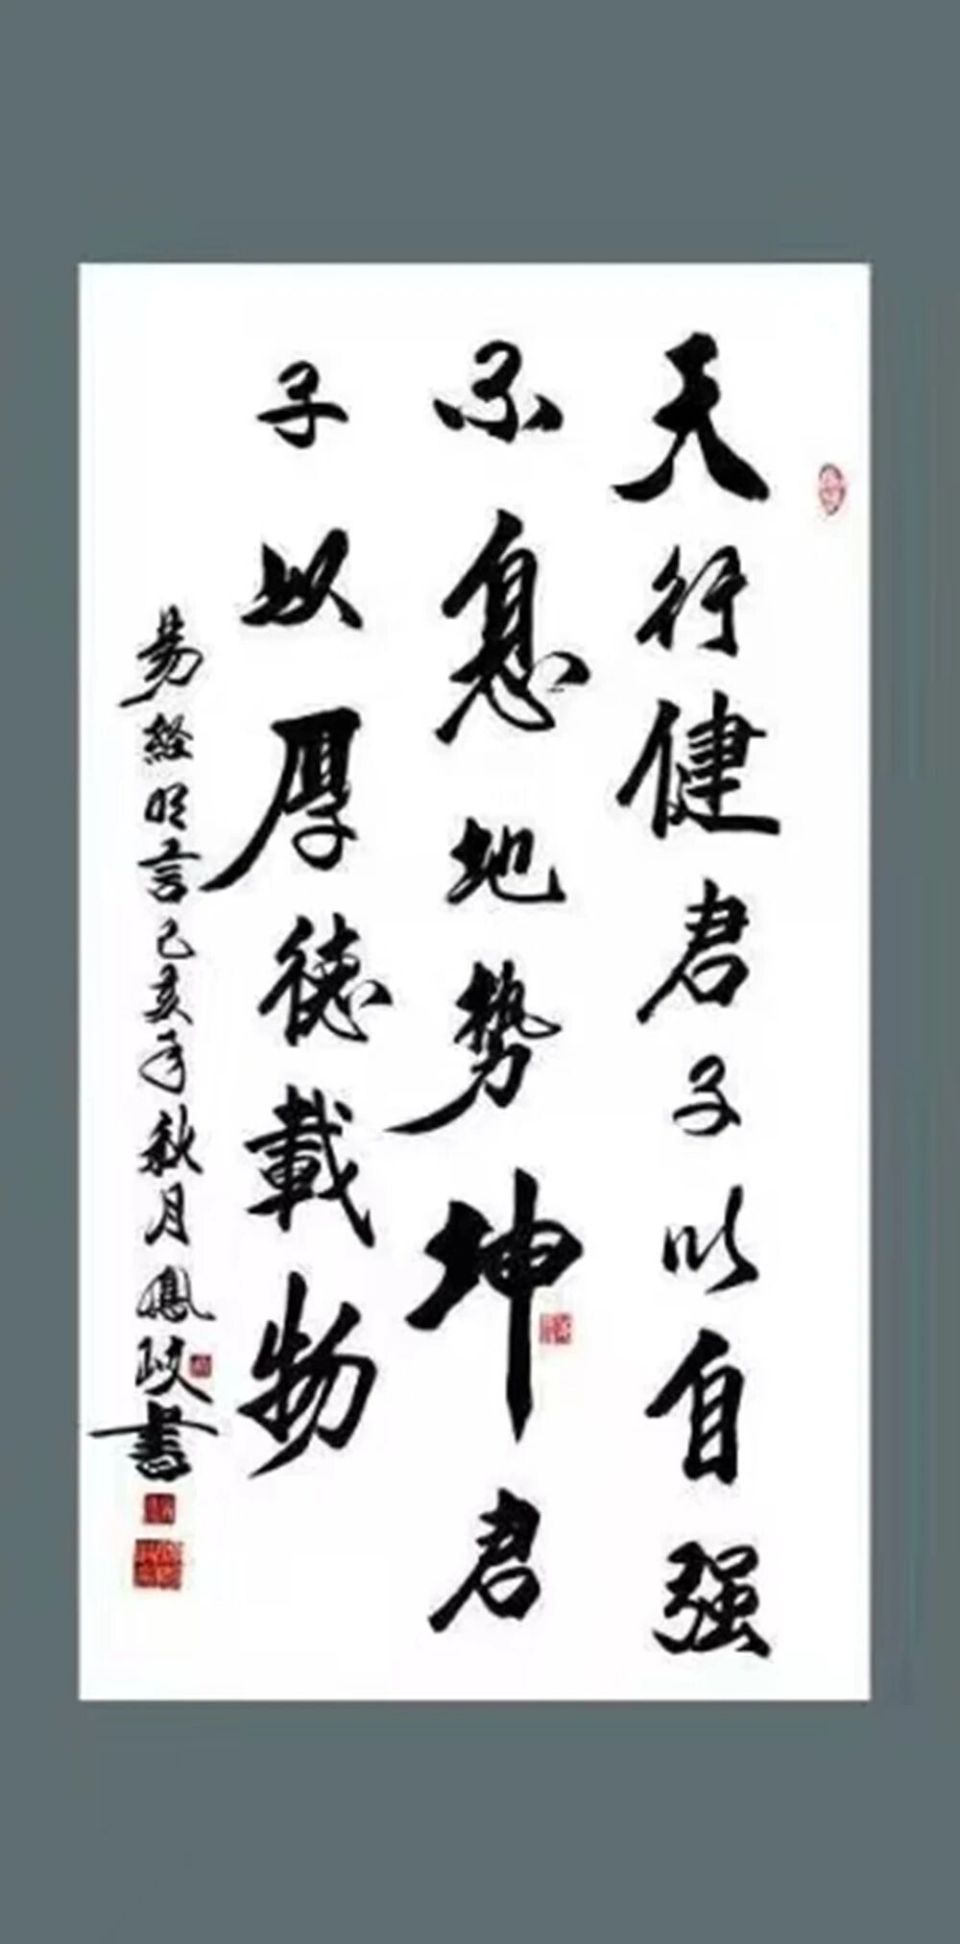 天行健君子以自强
不息地势坤君
子以厚德載物
易経明言己亥年秋月鳳政書